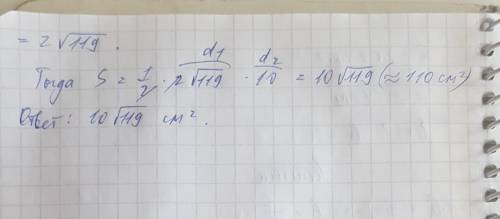 = 2√119 .
Тогда S = 1/2 · 2√119 · 10 = 10√119 (≈ 110 см²)
d1 d2
Ответ: 10√119 см².